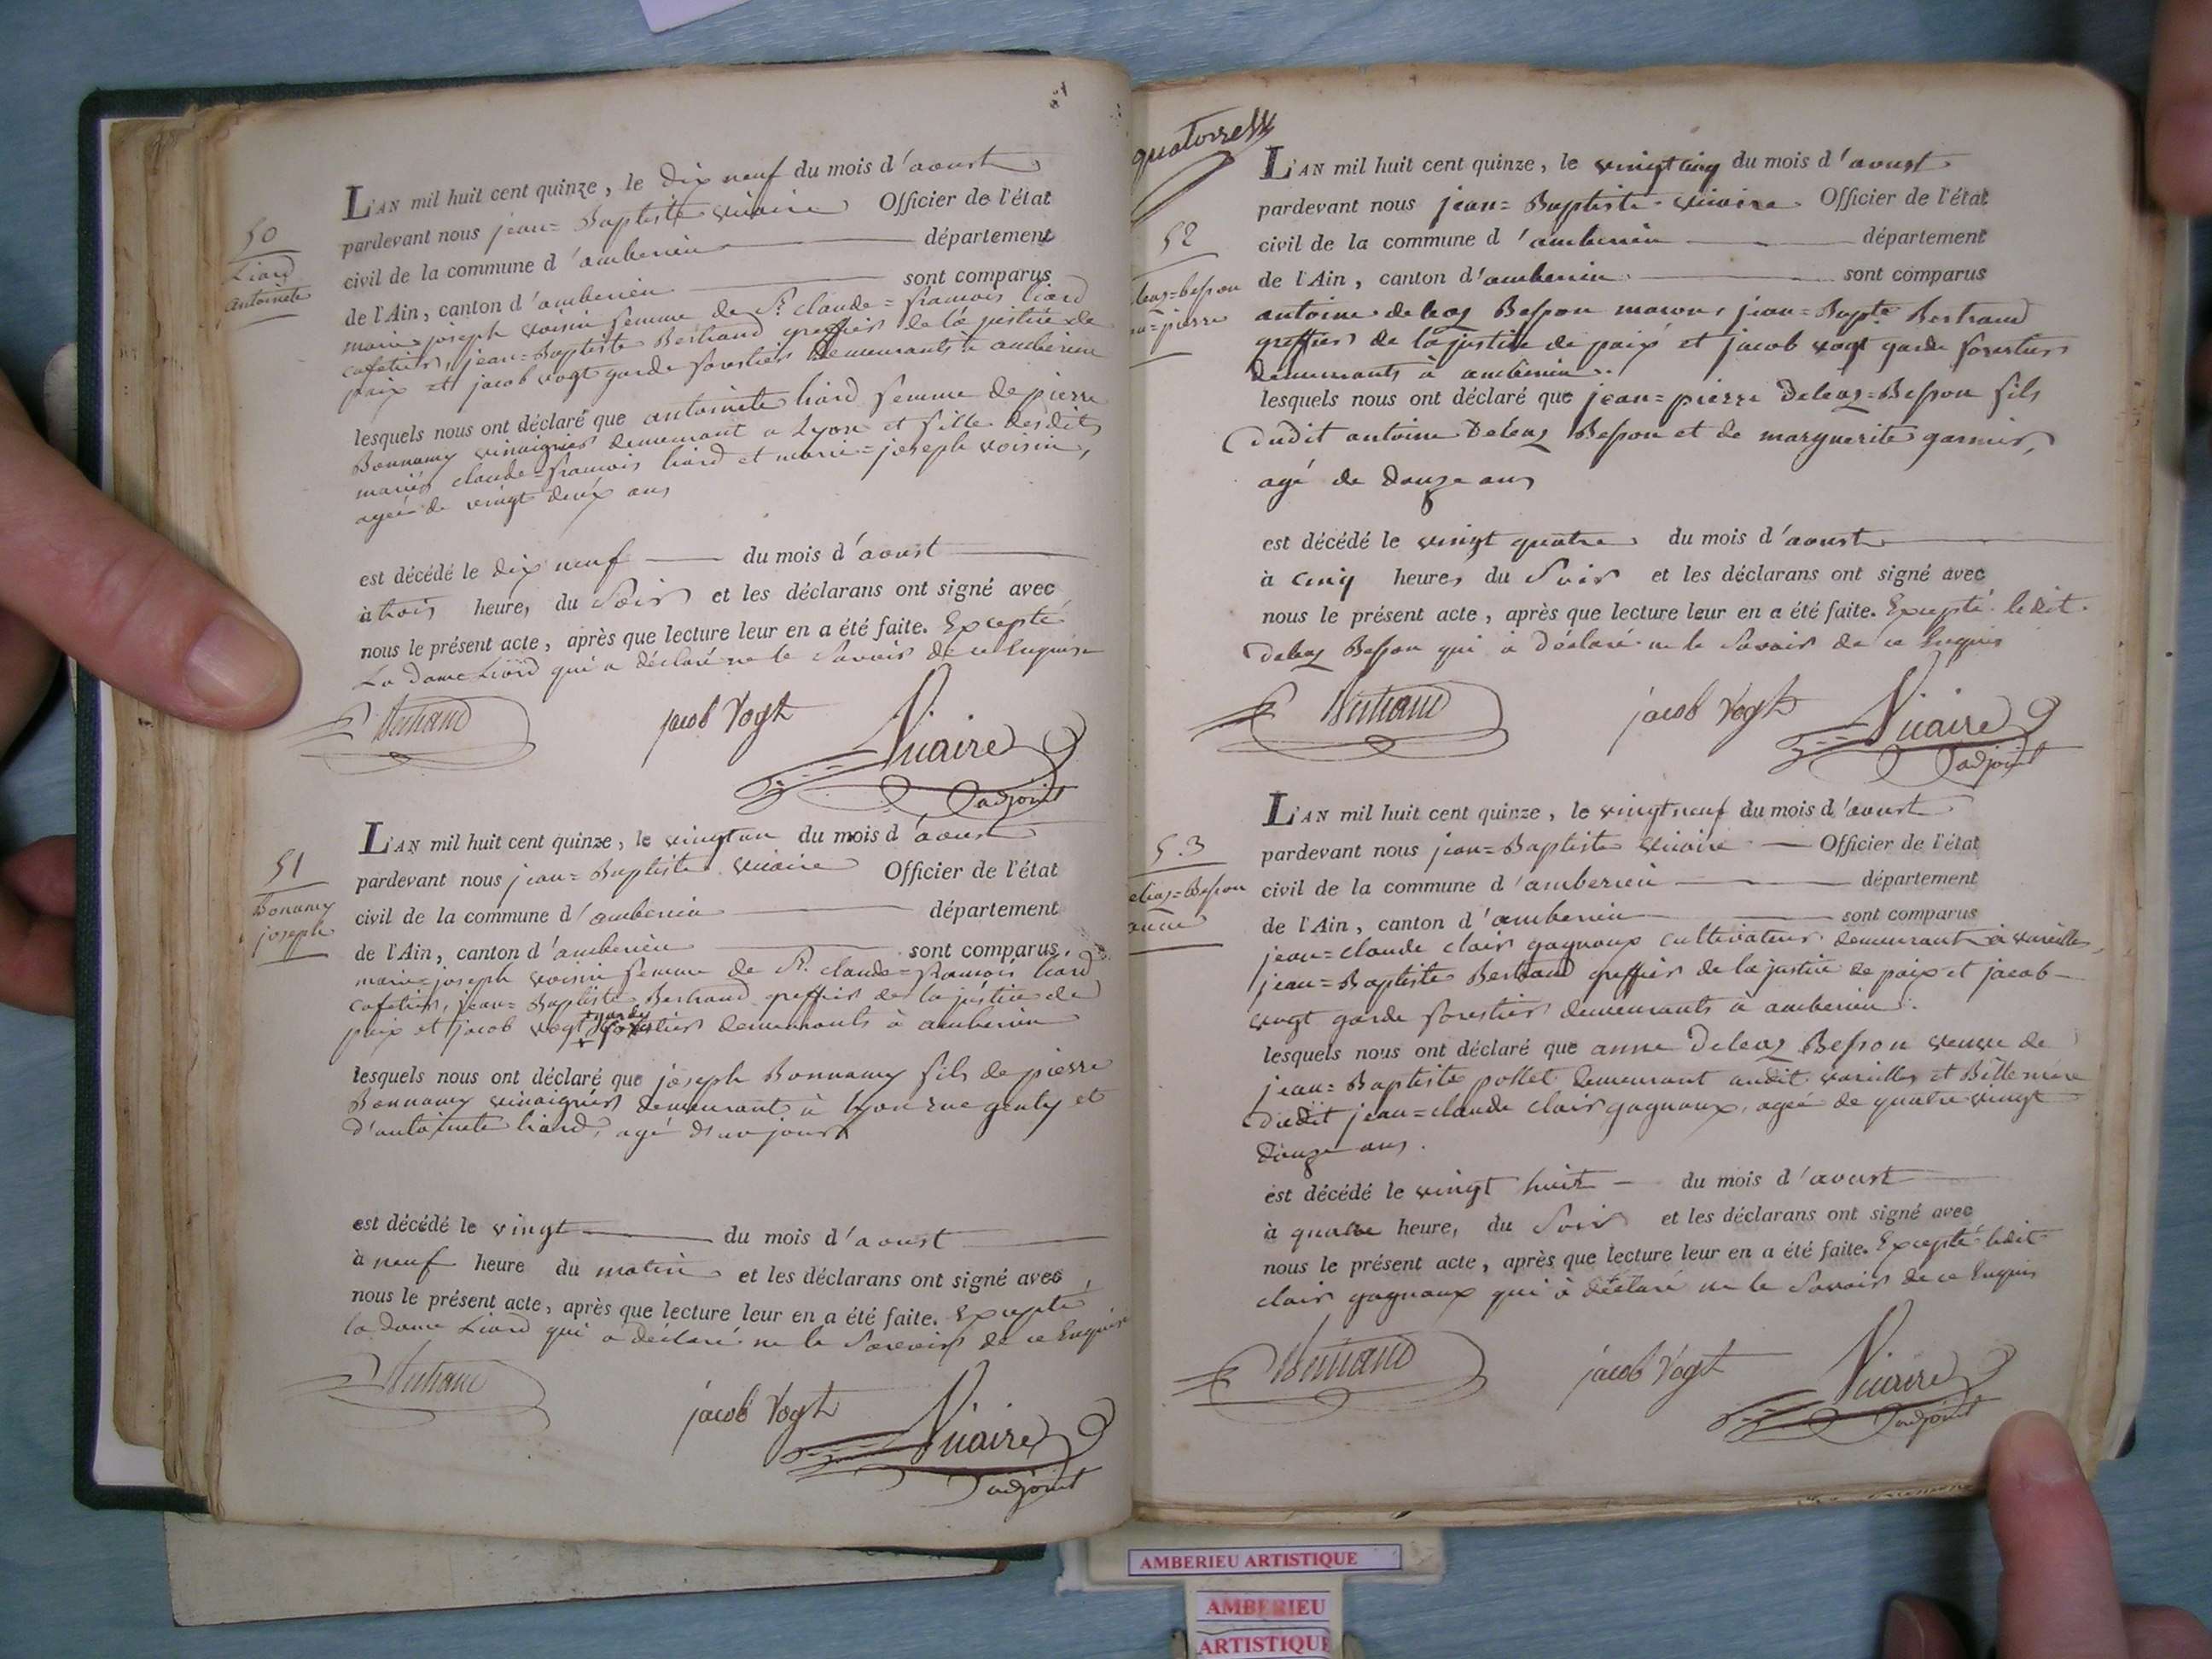 50
Liard
antoinete
L'AN mil huit cent quinze, le dix neuf du mois d'aoust
pardevant nous jean=Baptiste vicaire Officier de l'état
civil de la commune d'amberieu département
de l'Ain, canton d'amberieu sont comparus
marie=joseph voisin femme de Sr. claude=francois liard
cafetier, jean=Baptiste Bertrand greffier de la justice de
paix et jacob vogt garde forestier demeurants a amberieu
lesquels nous ont déclaré que antoinete liard femme de pierre
Bonnamy vinaigrier demeurant a Lyon et fille desdits
mariés claude=francois liard et marie=joseph voisin,
agée de vingt deux ans
est décédé le dix neuf du mois d'aoust
à trois heure, du Soir et les déclarans ont signé avec
nous le présent acte, après que lecture leur en a été faite. Excepté
La Dame Liard qui a déclaré ne le Savoir de ce Enquise
Bertrand
jacob Vogt
Vicaire
adjoint
51
Bonamy
joseph
L'AN mil huit cent quinze, le vingt un du mois d'aoust
pardevant nous jean=Baptiste vicaire Officier de l'état
civil de la commune d'amberieu département
de l'Ain, canton d'amberieu sont comparus
marie=joseph voisin femme de Sr. claude=francois liard
cafetier, jean=Baptiste Bertrand greffier de la justice de
paix et jacob vogt garde forestier demeurants à amberieu
lesquels nous ont déclaré que joseph Bonnamy fils de pierre
Bonnamy vinaigrier demeurant à Lyon rue genty et
d'antoinete liard, agé d'un jour
est décédé le vingt du mois d'aoust
à neuf heure du matin et les déclarans ont signé avec
nous le présent acte, après que lecture leur en a été faite. Excepté
la dame Liard qui a déclaré ne le Savoir de ce Enquise
Bertrand
jacob Vogt
Vicaire
adjoint
quatorze
52
leaz=besson
pierre
L'AN mil huit cent quinze, le vingt cinq du mois d'aoust
pardevant nous jean=Baptiste vicaire Officier de l'état
civil de la commune d'amberieu département
de l'Ain, canton d'amberieu sont comparus
antoine deleaz Besson macon, jean=Bapte. Bertrand
greffier de la justice de paix et jacob vogt garde forestier
demeurants à amberieu
lesquels nous ont déclaré que jean=pierre Deleaz=Besson fils
dudit antoine Deleaz Besson et de marguerite garnier,
agé de douze ans
est décédé le vingt quatre du mois d'aoust
à cinq heures du Soir et les déclarans ont signé avec
nous le présent acte, après que lecture leur en a été faite. Excepté ledit
Deleaz Besson qui à Déclaré ne le Savoir de ce Enquis
Bertrand
jacob Vogt
Vicaire
adjoint
53
eleaz=Besson
anne
L'AN mil huit cent quinze, le vingt neuf du mois d'aoust
pardevant nous jean=Baptiste vicaire Officier de l'état
civil de la commune d'amberieu département
de l'Ain, canton d'amberieu sont comparus
jean=claude clair gagnoux cultivateur demeurant à vareilles,
jean=Baptiste Bertrand greffier de la justice de paix et jacob
vogt garde forestier demeurants à amberieu.
lesquels nous ont déclaré que anne Deleaz Besson veuve de
jean=Baptiste pollet demeurant audit vareilles et Bellemère
dudit jean=claude clair gagnoux, agée de quatre vingt
douze ans.
est décédé le vingt huit du mois d'aoust
à quatre heure, du Soir et les déclarans ont signé avec
nous le présent acte, après que lecture leur en a été faite. Excepté ledit
clair gagnoux qui à déclaré ne le Savoir de ce Enquis
Bertrand
jacob Vogt
Vicaire
adjoint
AMBERIEU ARTISTIQUE
AMBERIEU
ARTISTIQUE